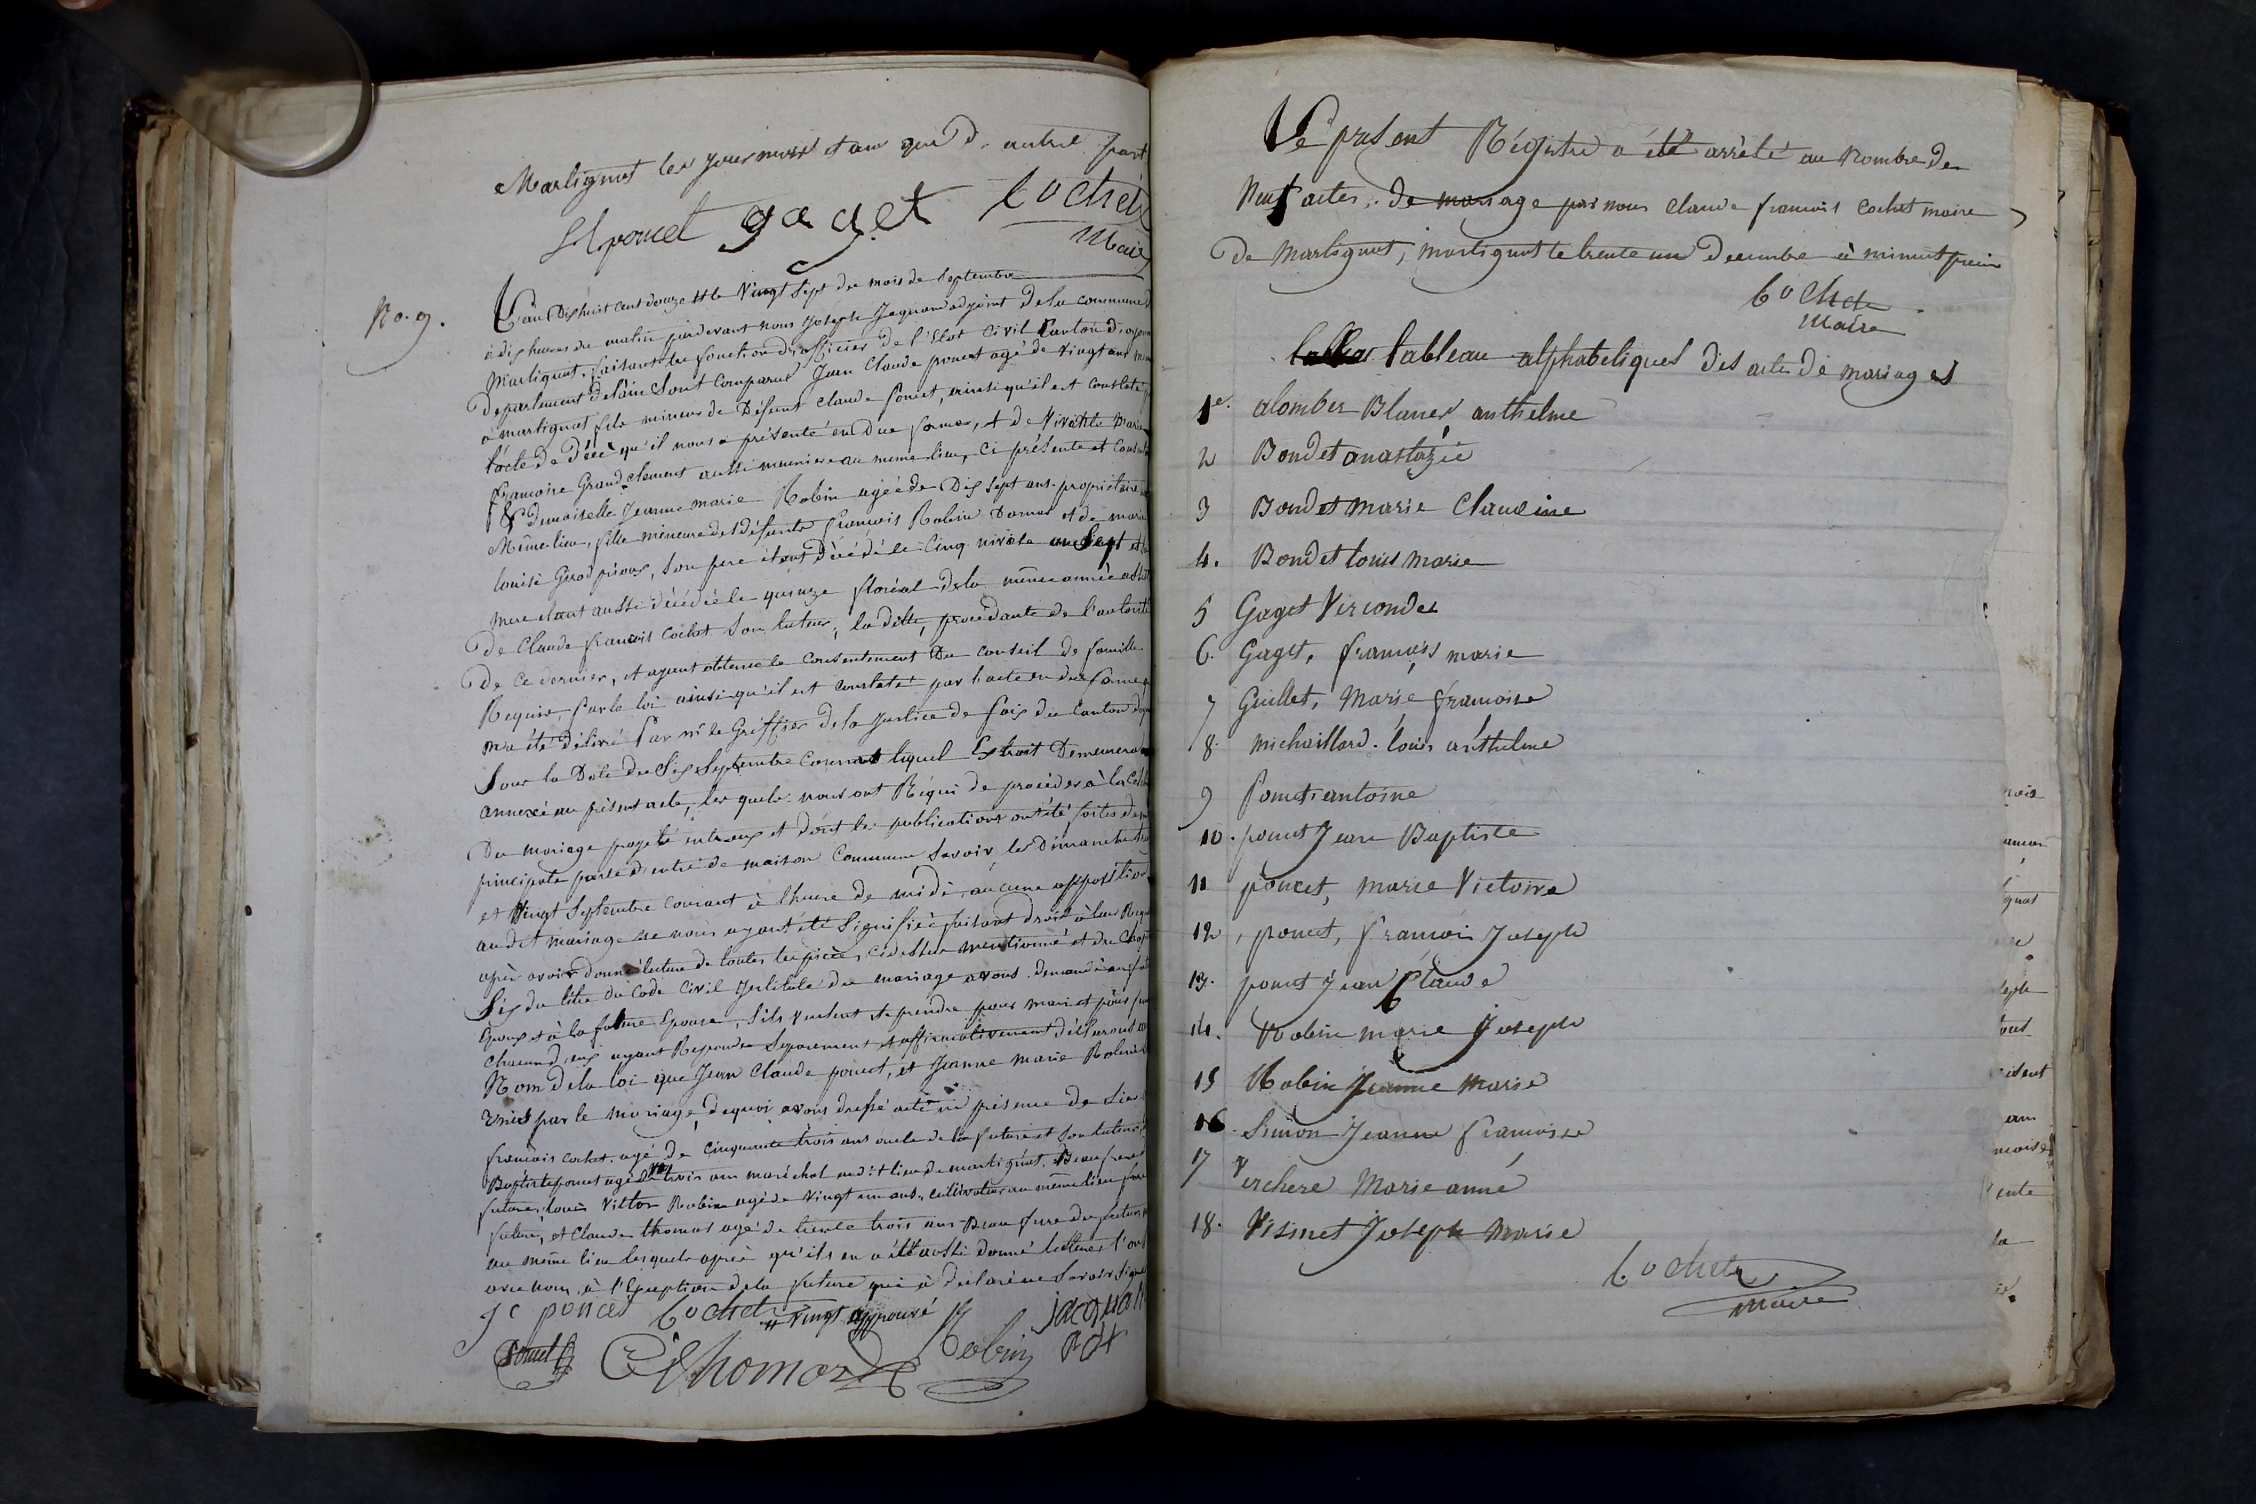 Martignat les jour mois et an que d'autre part
poncet gaget Cochet
Maire
No. 9.
L'an Dix huit cent douze et le Vingt Sept du mois de Septembre
à dix heures du matin pardevant nous Joseph Jaquand adjoint de la commune d
Martignat, faisant les fonction d'officier de l'Etat Civil Canton d'oyon
Departement de l'ain Sont Comparus Jean Claude poncet agé de Vingt ans
a martignat fils mineur de Défunt Claude Poncet, ainsi qu'il est constaté
l'acte de décè qu'il nous a présenté en due forme, et de Vivante Marie
francoise Grandclement aussi meuniere au meme lieu, ci présente et Consent
& demoiselle Jeanne marie Robin agée de Dix Sept ans propriétaire
Même lieu, fille mineure de défunts françois Robin et de marie
louise, Son pere étant Décédé le Cinq nivôse an Sept et
mere etant aussi décédée le quinze floréal de la même année
De Claude francois Cochet Son tuteur, la ditte, procédante de l'autorité
De ce dernier, et ayant obtenu le Consentement Du Conseil de famille
Requis par la loi ainsi qu'il est constaté par l'acte en due forme
m'a été délivré Par mr le Greffier de la Justice de Paix du Canton
Sous la Date du Six Septembre Courant lequel Extrait Demeurera
annexé au présent acte, les quels nous ont Réquis de procéder à la
Du mariage projeté entr'eux et dont les publications ont été faites
principale porte d'entré de maison Commune Savoir, les Dimanche
et Vingt Septembre courant à l'heure de midi, aucune opposition
audit mariage ne nous ayant été Signifiée faisant droit à leur
après avoir donné lecture de toutes les pièces cidessus mentionné et du Chap
Six du titre du Code Civil Intitulé du mariage avons demandé au
Epoux et à la future Epouse, S'ils veulent Se prendre pour mari et pour
Chacun d'eux ayant Repondu Separement et affirmativement déclarons
Nom de la loi que Jean Claude poncet, et Jeanne Marie Robin
Unies par le mariage, dequoi avons dressé acte en présence de
francois cochet agé de cinquante trois ans oncle de la future et Son tuteur
Baptiste poncet agé de trois ans maréchal audit lieu de martignat, Beau frere
future, louis Victor Robin agé de Vingt un ans, cultivateur au même lieu
future, et Claude thomas agé de trente trois ans Beau frere du futur
au même lieu lesquels après qu'ils en a été aussi donné lecture l'ont
avec nous, à l'Exeption de la future qui à déclaré ne Savoir Signé
J c poncet Cochet vingt approuvé Robin jacquand
Poncet Cthomas adt
Le présent Régistre a été arrèté au nombre de
Neuf actes de mariage par nous Claude francois Cochet maire
De Martignat, martignat le trente un Decembre à minuit
Cochet
Maire
tableau alphabetiques des acte de mariages
1er. alombert Blaner anthelme
2 Bondet anastazie
3 Bondet Marie Claudine
4. Bondet louis Marie
5 Gaget Verconder
6. Gaget, francois marie
7 Guillet, Marie francoise
8. michaillard. louis anthelme
9 Poncet antoine
10. poncet Jean Baptiste
11 poncet, marie Victoire
12, poncet, francois Joseph
13. poncet Jean Claude
14. Robin marie Joseph
15 Robin Jeanne Marie
16. Simon Jeanne francoise
17 Verchere Marie anne
18. Visinet Joseph Marie
Cochet
Maire